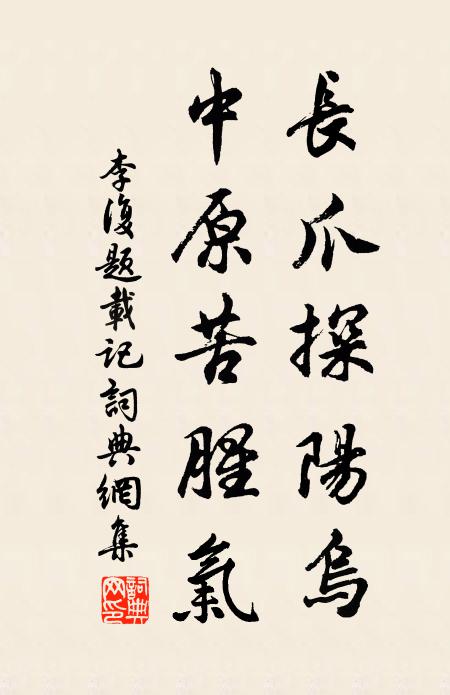 長爪探陽烏
中原苦腥氣
李復題載記詞典網集
詞典网印